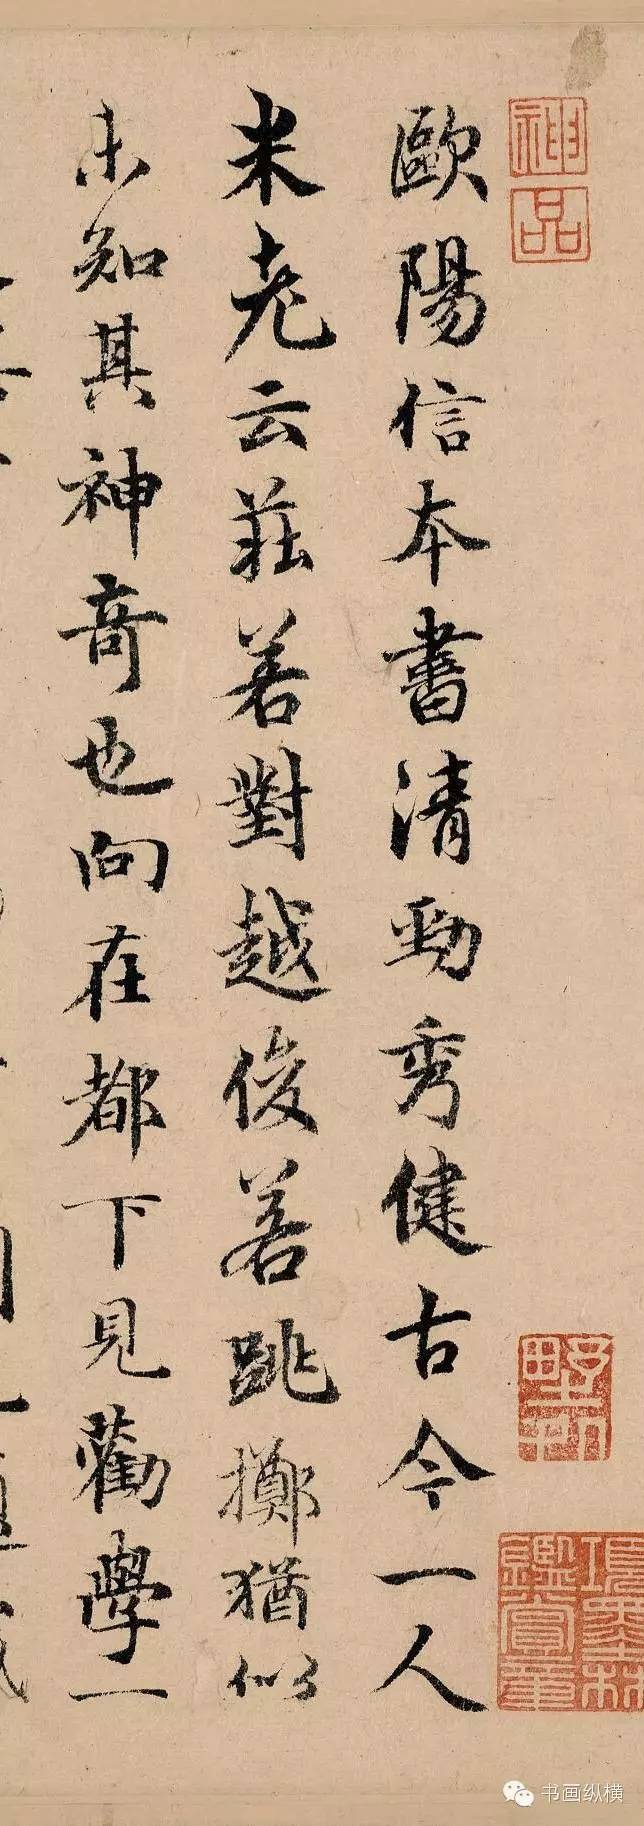 神品
項墨林鑑賞章
歐陽信本書清勁秀健古今一人
米老云莊若對越俊若跳擲猶似
未知其神奇也向在都下見勸學一
书画纵横